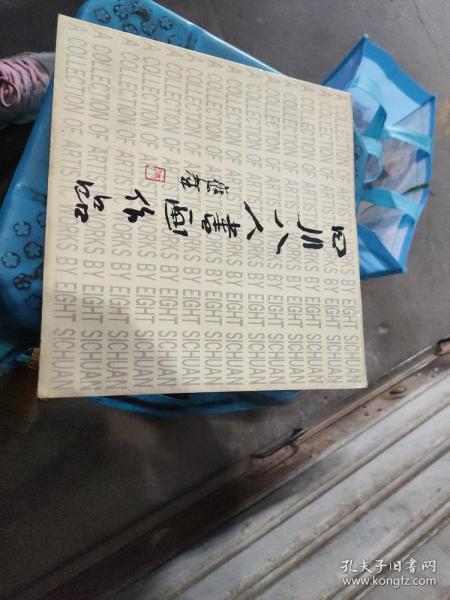 四川八人書画作品
A COLLECTION OF WORKS BY EIGHT SICHUAN
A COLLECTION OF WORKS BY EIGHT SICHUAN
A COLLECTION OF WORKS BY EIGHT SICHUAN
A COLLECTION OF WORKS BY EIGHT SICHUAN
A COLLECTION OF WORKS BY EIGHT SICHUAN
A COLLECTION OF WORKS BY EIGHT SICHUAN
A COLLECTION OF WORKS BY EIGHT SICHUAN
A COLLECTION OF WORKS BY EIGHT SICHUAN
孔夫子旧书网
www.kongfz.com